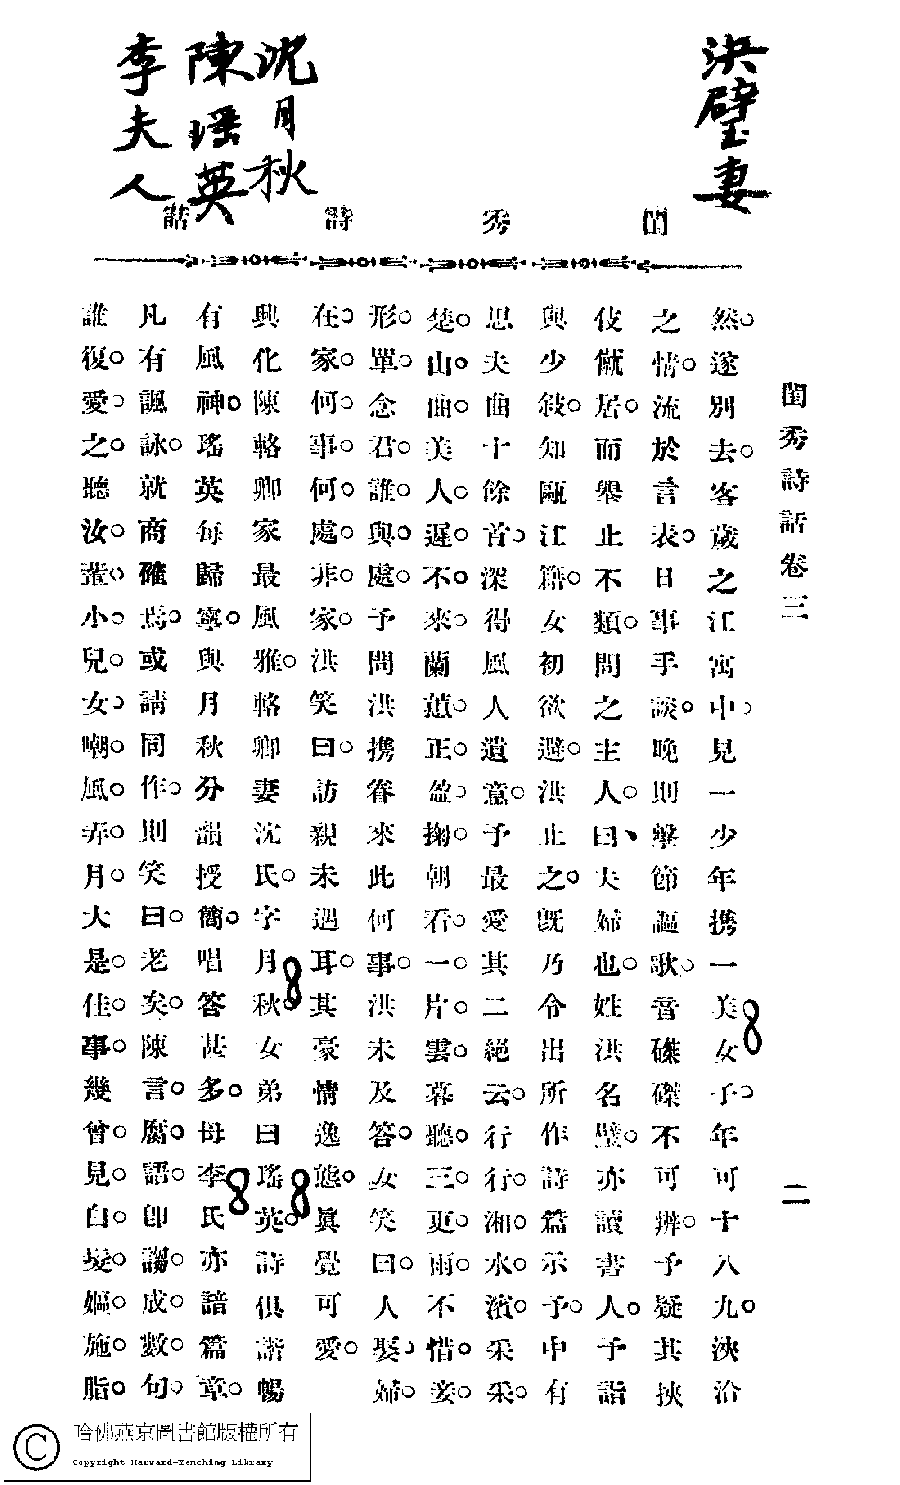 洪璧妻
沈月秋
陳瑤英
李夫人
閨秀詩話
閨秀詩話卷三
二
然。遂別去。客歲之江寓中。見一少年攜一美女子。年可十八九。浹洽
之情。流於言表。日事手談。晚則擊節謳歌。音磔磔不可辨。予疑其挾
伎僦居。而舉止不類。問之主人。曰、夫婦也。姓洪名璧。亦讀書人。予詣
與少敍。知甌江籍。女初欲避。洪止之。既乃令出所作詩篇示予。中有
思夫曲十餘首。深得風人遺意。予最愛其二絕云。行行湘水濱。采采
楚山曲。美人遲不來。蘭蕙正盈掬。朝看一片雲。暮聽三更雨。不惜妾
形單。念君誰與處。予問洪攜眷來此何事。洪未及答。女笑曰。人娶婦。
在家。何事何處非家。洪笑曰。訪親未遇耳。其豪情逸態。眞覺可愛。
興化陳輅卿家最風雅。輅卿妻沈氏。字月秋。女弟曰瑤英。詩俱諧暢
有風神。瑤英每歸寧。與月秋分韻授簡。唱答甚多。母李氏亦諳篇章。
凡有諷詠。就商確焉。或請同作。則笑曰。老矣。陳言腐語。卽謅成數句。
誰復愛之。聽汝輩小兒女嘲風弄月。大是佳事。幾曾見白髮嫗施脂
哈佛燕京圖書館版權所有
Copyright Harvard-Yenching Library